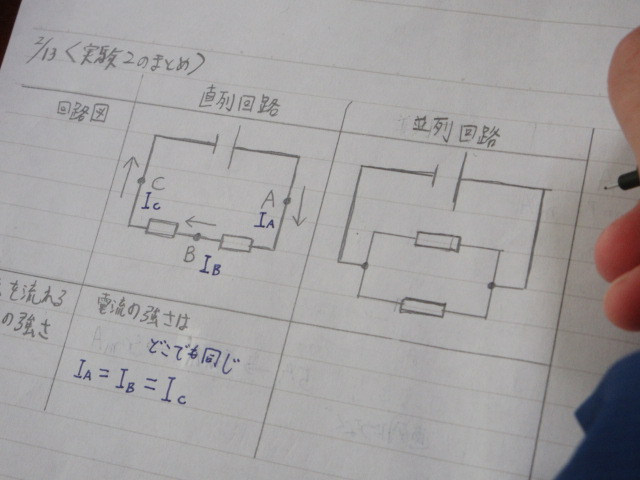 2/13 〈実験2のまとめ〉
回路図
直列回路
並列回路
C
A
Ic
IA
B
IB
を流れる
の強さ
電流の強さは
どこでも同じ
IA = IB = Ic